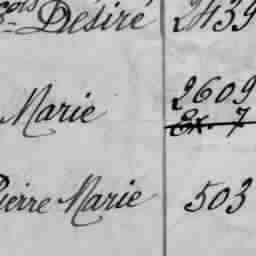 çois Désiré 2439
Marie 2609
Ex. 7
Pierre Marie 503